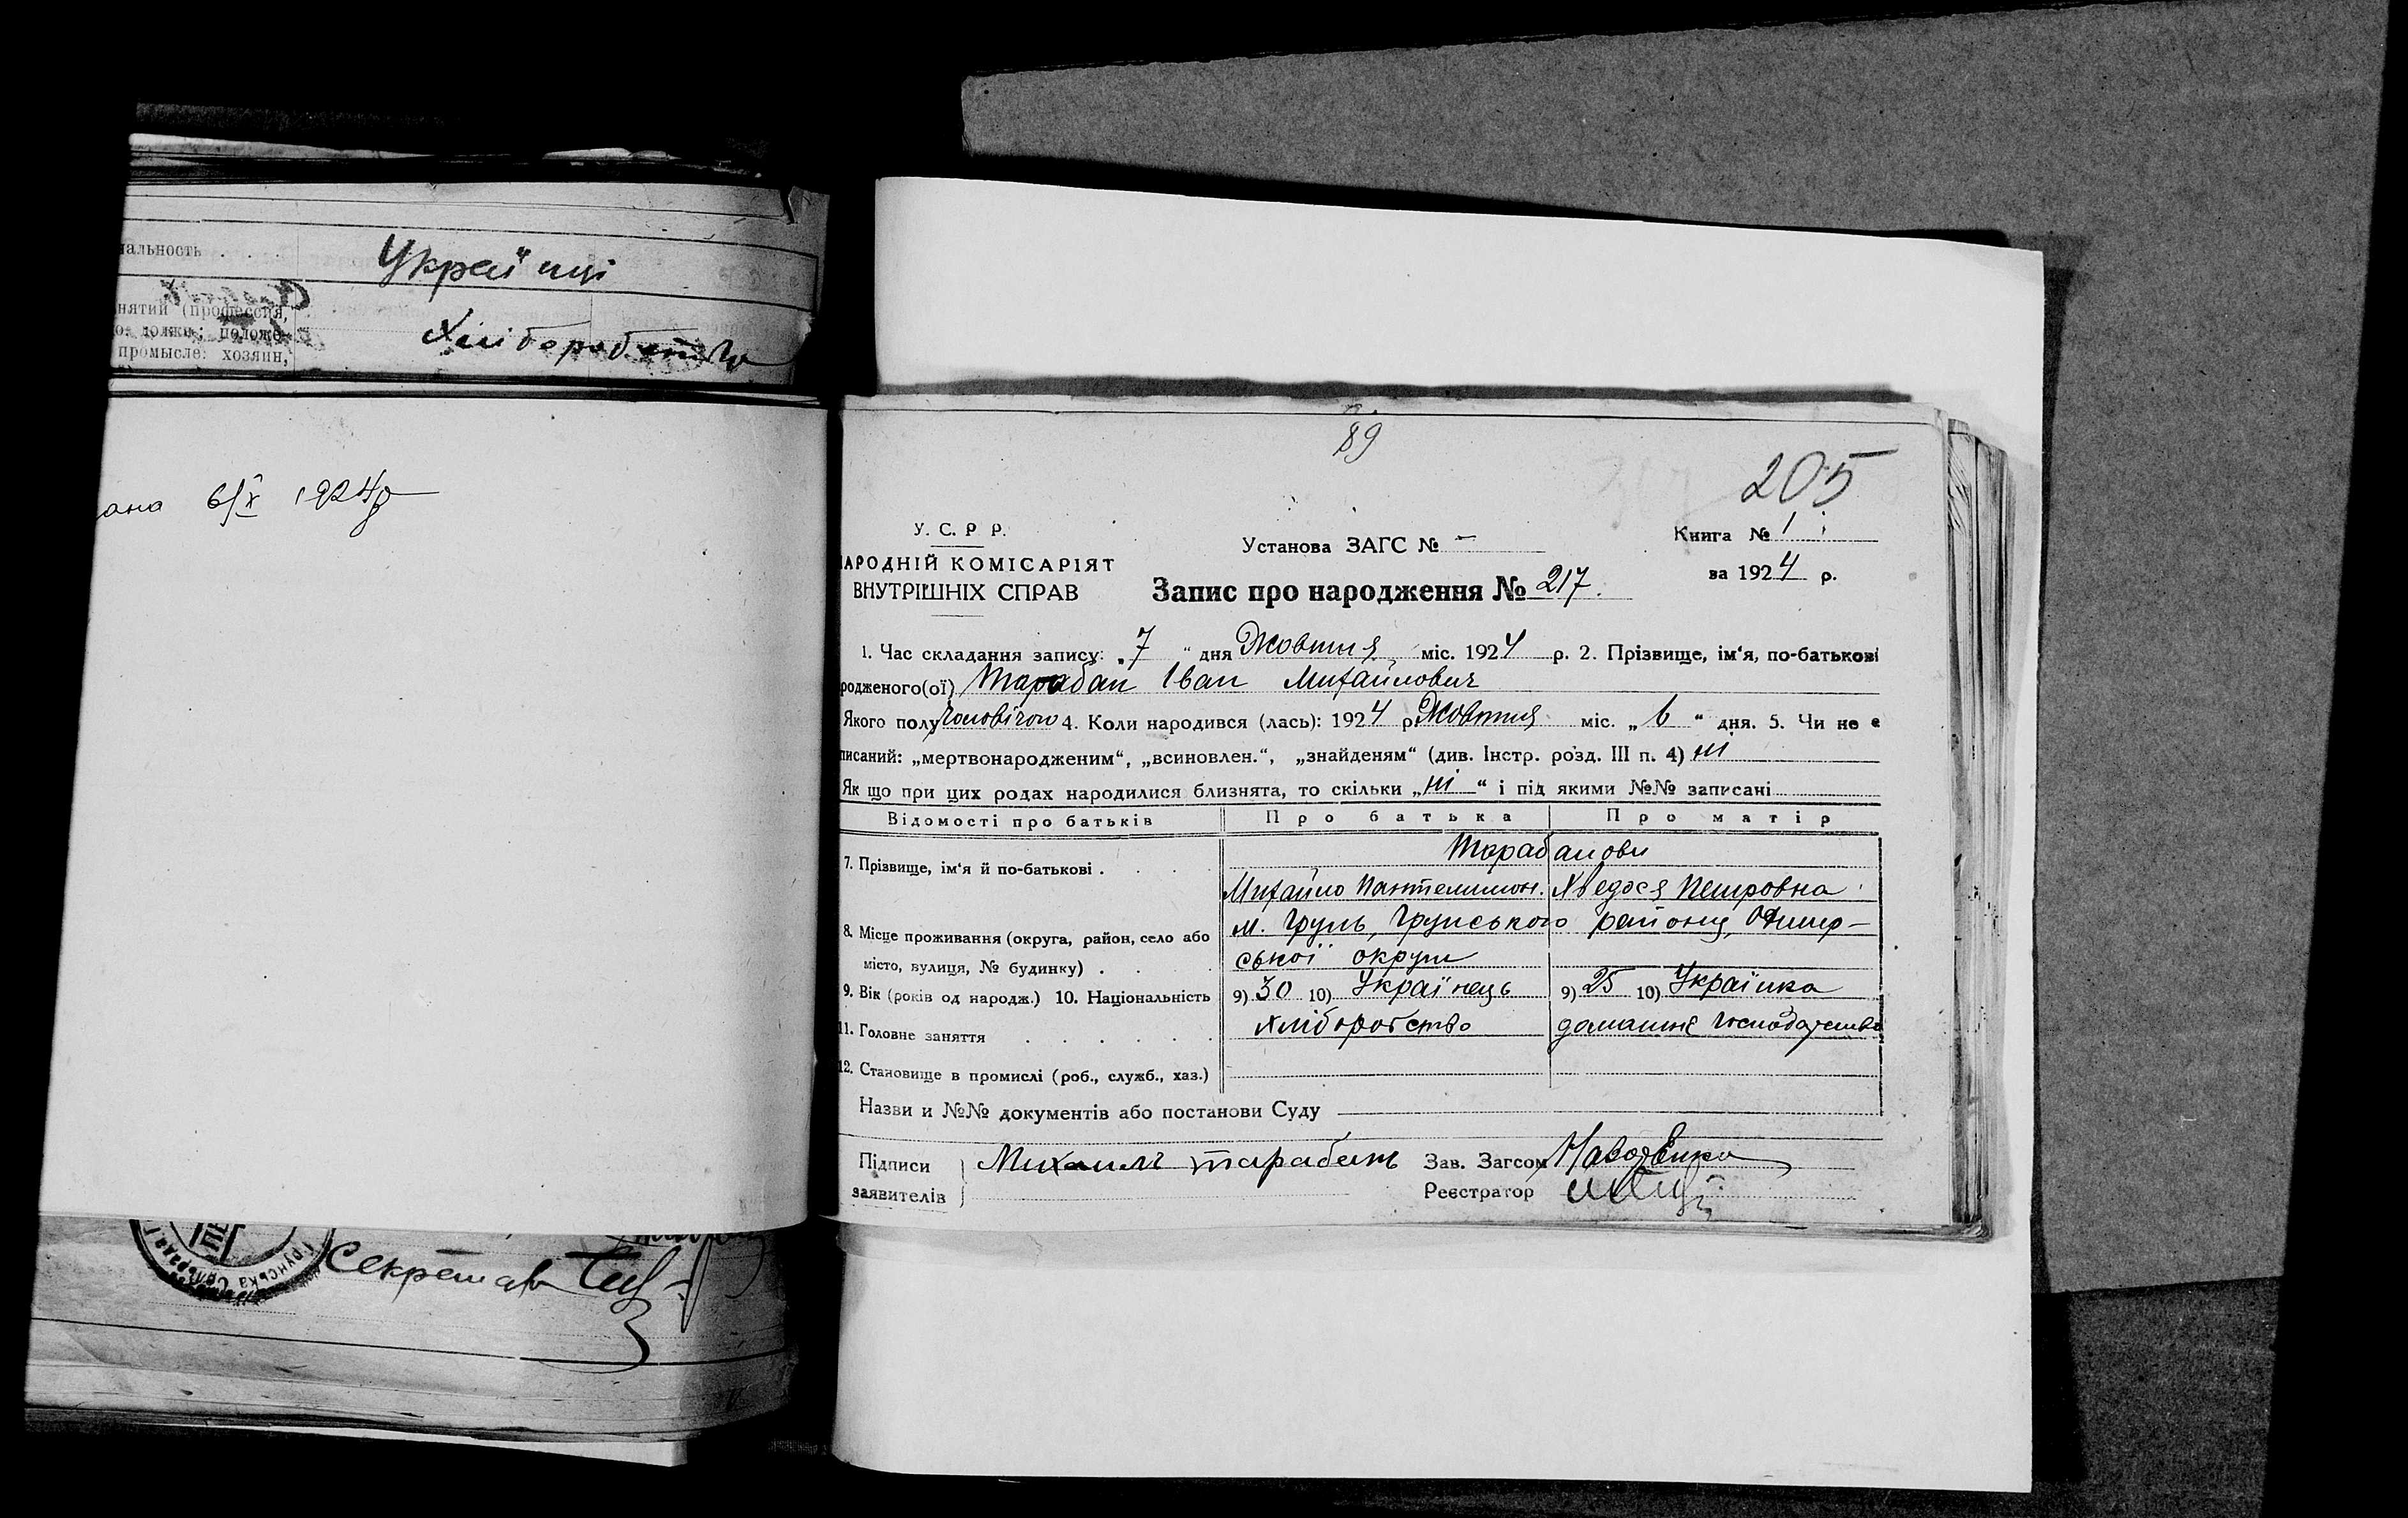 нальность . . .
Українці
нятий (профессия,
о. должн; положе-
промысле: хозяин,
Хліборобство
ана 6/X 1924р
Секретар
Грунська Сільрада
89
205
У. С. Р Р.
АРОДНІЙ КОМІСАРІЯТ
ВНУТРІШНІХ СПРАВ
Установа ЗАГС № –
Книга № 1
за 1924 р.
Запис про народження № 217.
1. Час складання запису: „7 “ дня Жовтня міс. 1924 р. 2. Прізвище, ім‘я, по-батькові
родженого(ої) Тарабан Іван Михайлович
Якого полу Чоловічого 4. Коли народився (лась): 1924 р. Жовтня міс. „ 6 “ дня. 5. Чи не є
писаний: „мертвонародженим“, „всиновлен.“, „знайденям“ (див. Інстр. розд. III п. 4) ні
Як що при цих родах народилися близнята, то скільки „ні“ і під якими №№ записані
Відомості про батьків Про батька Про матір
7. Прізвище, ім‘я й по-батькові . Тарабанови
Михайло Пантелимон. Хведося Петровна
8. Місце проживання (округа, район, село або м. Грунь, Грунського району, Охтир-
місто, вулиця, № будинку) . ської округи
9. Вік (років од народж.) 10. Національність 9) 30 10) Українець 9) 25 10) Українка
11. Головне заняття хліборобство домашнє господарство
12. Становище в промислі (роб., служб., хаз.)
Назви и №№ документів або постанови Суду
Підписи Михаилъ тарабанъ Зав. Загсом
заявителів Реєстратор